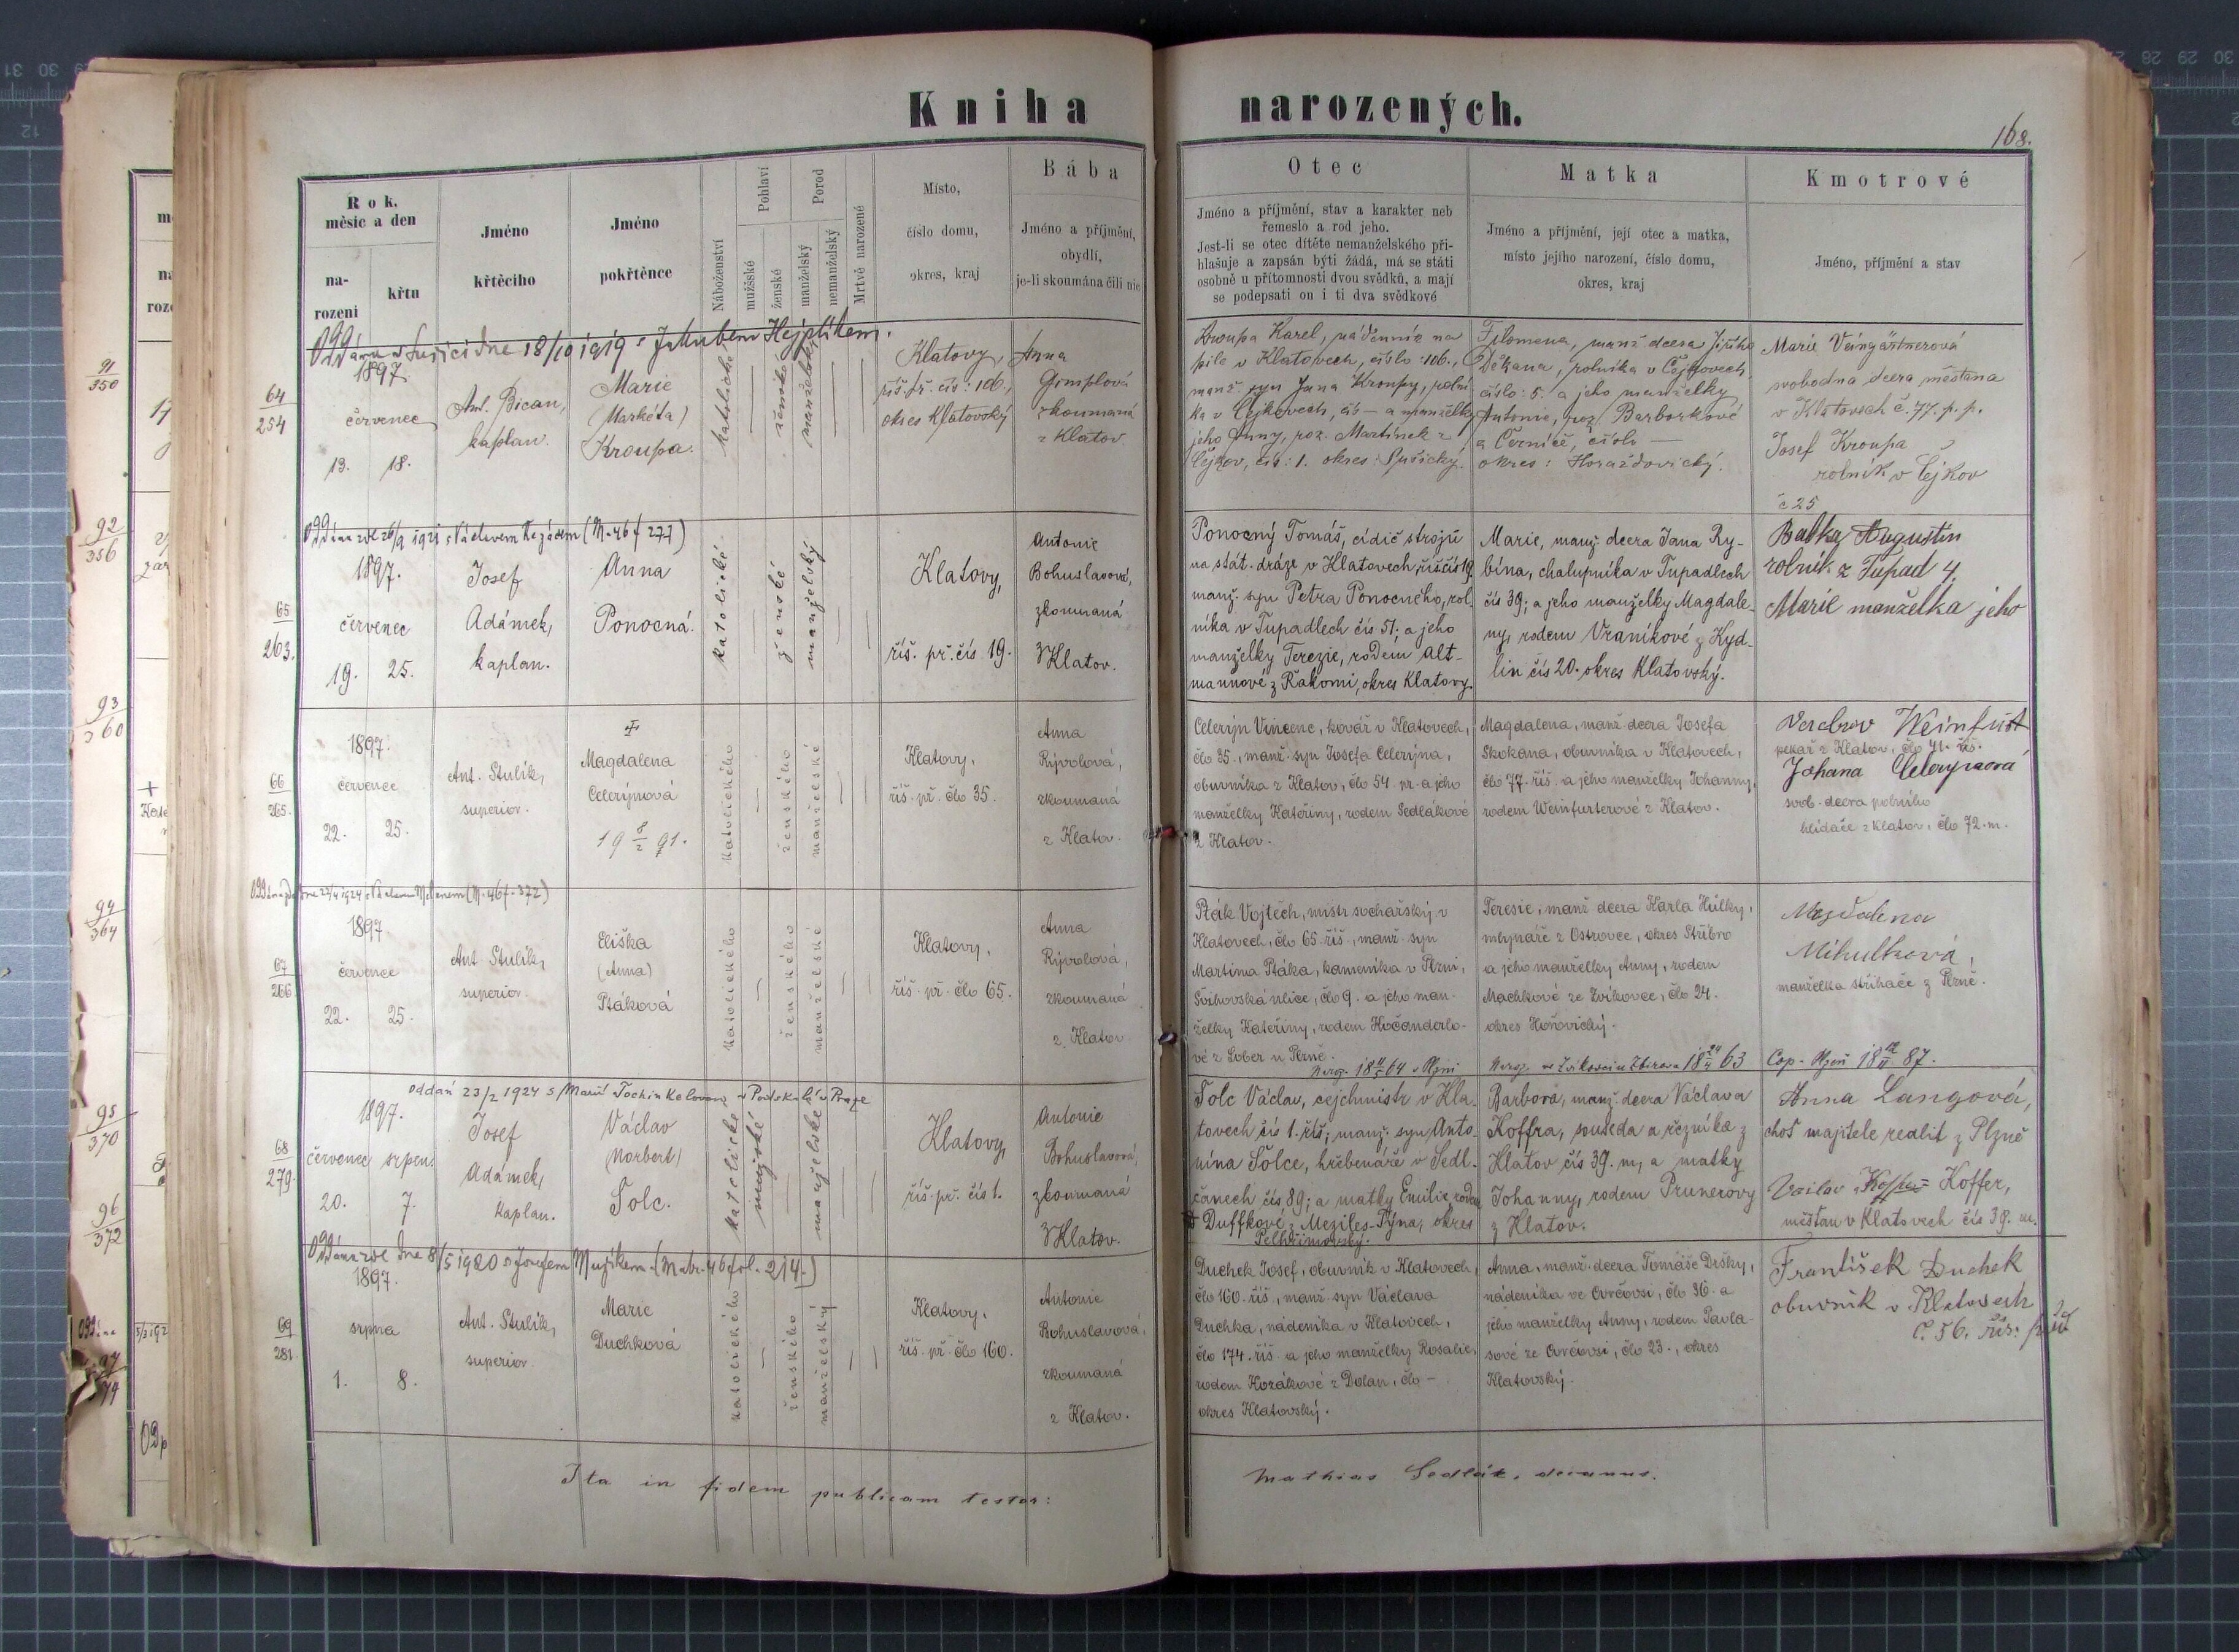 Kniha narozených.
168.
Rok, měsíc a den
narození
křtu
Jméno křtěcího
Jméno pokřtěnce
Náboženství
Pohlaví
mužské
ženské
Porod
manželský
nemanželský
Mrtvě narozené
Místo,
číslo domu,
okres, kraj
Bába
Jméno a příjmění,
obydlí,
je-li skoumána čili nic
Otec
Jméno a příjmění, stav a karakter neb
řemeslo a rod jeho.
Jest-li se otec dítěte nemanželského při-
hlašuje a zapsán býti žádá, má se státi
osobně u přítomnosti dvou svědků, a mají
se podepsati on i ti dva svědkové
Matka
Jméno a příjmění, její otec a matka,
místo jejího narození, číslo domu,
okres, kraj
Kmotrové
Jméno, příjmění a stav
Oddána v Sušici dne 18/10 1919 s Jakubem Hejplíkem.
64
254
1897
červenec
13. 18.
Ant. Bican,
kaplan.
Marie
(Markéta)
Kroupa.
katolické
ženské
manželský
Klatovy,
říš. př. čís.: 106.,
okres Klatovský
Anna
Gimplová
zkoumaná
z Klatov.
Kroupa Karel, nádenník na
pile v Klatovech, číslo: 106.,
manž. syn Jana Kroupy, rolní
ka v Čejkovech, čís — a manželky
jeho Anny, roz. Martínek z
Čejkov, čís: 1. okres: Sušický.
Filomena, manž dcera Jiřího
Děkana, rolníka v Čejkovech
číslo: 5. a jeho manželky
Antonie, roz. Barborkové
z Černíče, číslo —
okres: Horažďovický.
Marie Veingärtnerová
svobodna dcera měštana
v Klatovech č. 77. p. p.
Josef Kroupa
rolník v Čejkov
č 25
65
263.
1897.
červenec
19. 25.
Josef
Adámek,
kaplan.
Anna
Ponocná.
katolické
ženské
manželský
Klatovy,
říš. př. čís. 19.
Antonie
Bohuslavová,
zkoumaná
z Klatov.
Ponocný Tomáš, cídič strojů
na stát. dráze v Klatovech, říš čís 19
manž. syn Petra Ponocného, rol
níka v Tupadlech čís 51; a jeho
manželky Terezie, rodem Alt-
mannové z Rakomi, okres Klatovy.
Marie, manž. dcera Jana Ry-
bína, chalupníka v Tupadlech
čís 39; a jeho manželky Magdale-
ny, rodem Vraníkové z Kyd-
lin čís 20. okres Klatovský.
Batka Augustin
rolník z Tupad 4
Marie manželka jeho
66
265.
1897.
července
22. 25.
Ant. Stulík,
superior.
Magdalena
Celerýnová
katolického
ženského
manželské
Klatovy,
říš. př. člo 35.
Anna
Rývolová,
zkoumaná
z Klatov.
Celerýn Vincenc, kovář v Klatovech,
člo 35., manž. syn Josefa Celerýna,
obuvníka z Klatov, člo 54 pr. a jeho
manželky Kateřiny, rodem Sedlákové
z Klatov.
Magdalena, manž dcera Josefa
Skokana, obuvníka v Klatovech,
člo 77. říš. a jeho manželky Johanny,
rodem Weinfurterové z Klatov.
pekař z Klatov, člo 41. říš.
Johana Celerynová
svob. dcera polního
hlídače z Klatov, člo 72. m.
67
266
1897.
července
22. 25.
Ant. Stulík,
superior.
Eliška
(Anna)
Ptáková
katolického
ženského
manželské
Klatovy,
říš. př. člo 65.
Anna
Rývolová,
zkoumaná
z Klatov
Pták Vojtěch, mistr sochařský v
Klatovech, člo 65. říš., manž. syn
Martina Ptáka, kameníka v Plzni,
Švihovská ulice, člo 9. a jeho man-
želky Kateřiny, rodem Kočanderlo-
vé z Lober u Plzně.
Teresie, manž dcera Karla Hůlky,
mlynáře z Ostrovce, okres Stříbro
a jeho manželky Anny, rodem
Machkové ze Zvíkovce, člo 24.
okres Hořovický.
Magdalena
Mikulková,
manželka stříhače z Plzně.
Oddán 23/2 1924 s Marií
68
279.
1897.
červenec srpen.
20. 7.
Josef
Adámek,
kaplan.
Václav
(Norbert)
Šolc.
katolické
mužské
manželské
Klatovy,
říš. př. čís 1.
Antonie
Bohuslavová,
zkoumaná
z Klatov.
Šolc Václav, cejchmistr v Kla-
tovech čís 1. říš; manž. syn Anto-
nína Šolce, hřebenáře v Sedl-
čanech čís 89; a matky Emilie, rodem
Duffkové z Meziles-Týna, okres
Pelhřimovský.
Barbora, manž dcera Václava
Koffra, souseda a řezníka z
Klatov čís 39. m, a matky
Johanny, rodem Prunerovy
z Klatov.
Anna Langová,
choť majitele realit z Plzně
Koffer,
měšťan v Klatovech čís 39. m.
69
281.
1897.
srpna
1. 8.
Ant. Stulík,
superior.
Marie
Duchková
katolického
ženského
manželský
Klatovy,
říš. př. člo 160.
Antonie
Bohuslavová,
zkoumaná
z Klatov.
Duchek Josef, obuvník v Klatovech,
člo 160. říš., manž. syn Václava
Duchka, nádeníka v Klatovech,
člo 174. říš. a jeho manželky Rosalie,
rodem Horákové z Dolan, člo —
okres Klatovský.
Anna, manž. dcera Tomáše Dršky,
nádeníka ve Ovčovsi, člo 36. a
jeho manželky Anny, rodem Pavla-
sové ze Ovčovsi, člo 23., okres
Klatovský.
František Duchek
obuvník v Klatovech
č. 56. říš.
Ita in fidem publicam testor:
Mathias Sedlák, decanus.
91
350
92
356
93
360
94
364
95
370
96
372